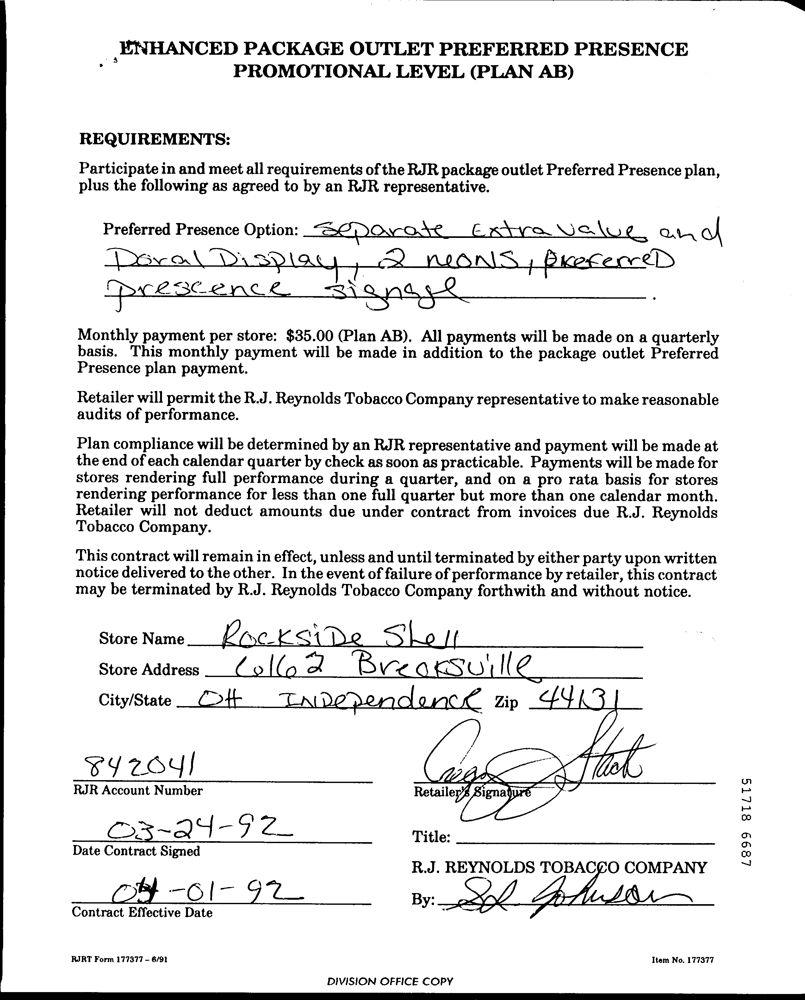 ENHANCED PACKAGE OUTLET PREFERRED PRESENCE
PROMOTIONAL LEVEL (PLAN AB)
REQUIREMENTS:
Participate in and meet all requirements of the RJR package outlet Preferred Presence plan,
plus the following as agreed to by an RJR representative.
Preferred Presence Option: Separate Extra Value and
Doral Display, 2 neons, preferred
prescence signage.
Monthly payment per store: $35.00 (Plan AB). All payments will be made on a quarterly
basis. This monthly payment will be made in addition to the package outlet Preferred
Presence plan payment.
Retailer will permit the R.J. Reynolds Tobacco Company representative to make reasonable
audits of performance.
Plan compliance will be determined by an RJR representative and payment will be made at
the end of each calendar quarter by check as soon as practicable. Payments will be made for
stores rendering full performance during a quarter, and on a pro rata basis for stores
rendering performance for less than one full quarter but more than one calendar month.
Retailer will not deduct amounts due under contract from invoices due R.J. Reynolds
Tobacco Company.
This contract will remain in effect, unless and until terminated by either party upon written
notice delivered to the other. In the event of failure of performance by retailer, this contract
may be terminated by R.J. Reynolds Tobacco Company forthwith and without notice.
Store Name Rockside Shell
Store Address Brecksville
City/State OH Independence Zip 44131
842041
RJR Account Number
Retailer's Signature
03-24-92
Date Contract Signed
Title:
R.J. REYNOLDS TOBACCO COMPANY
04-01-92
Contract Effective Date
By: Johnson
51718 6687
RJRT Form 177377 - 6/91
Item No. 177377
DIVISION OFFICE COPY